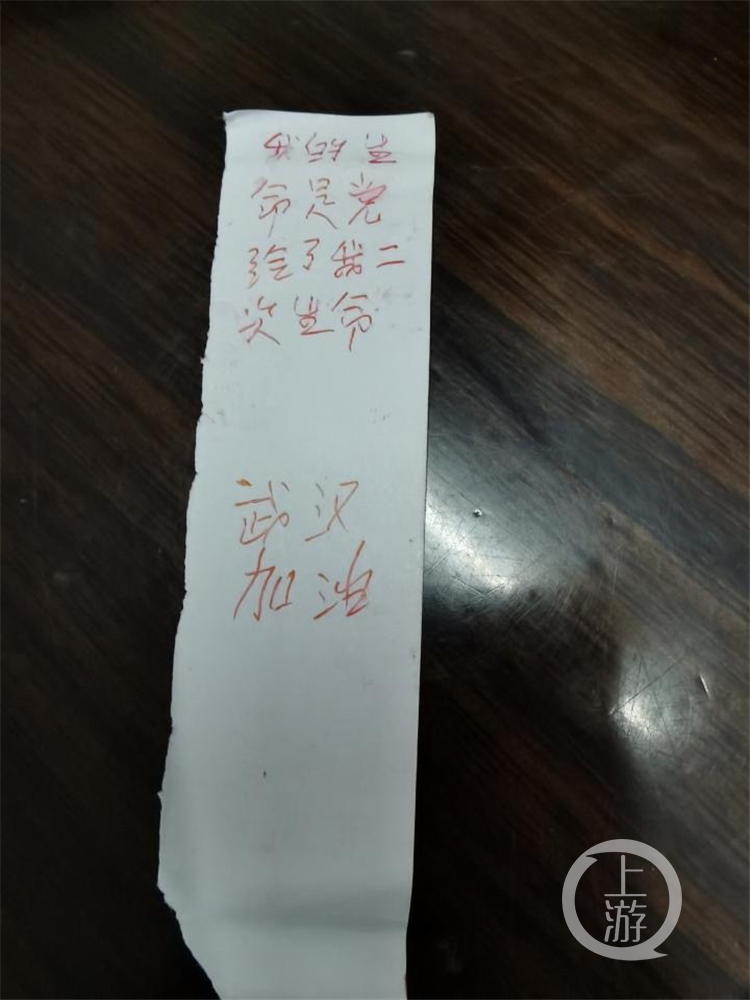 我的生
命是党
给了我二
次生命
武汉
加油
上游